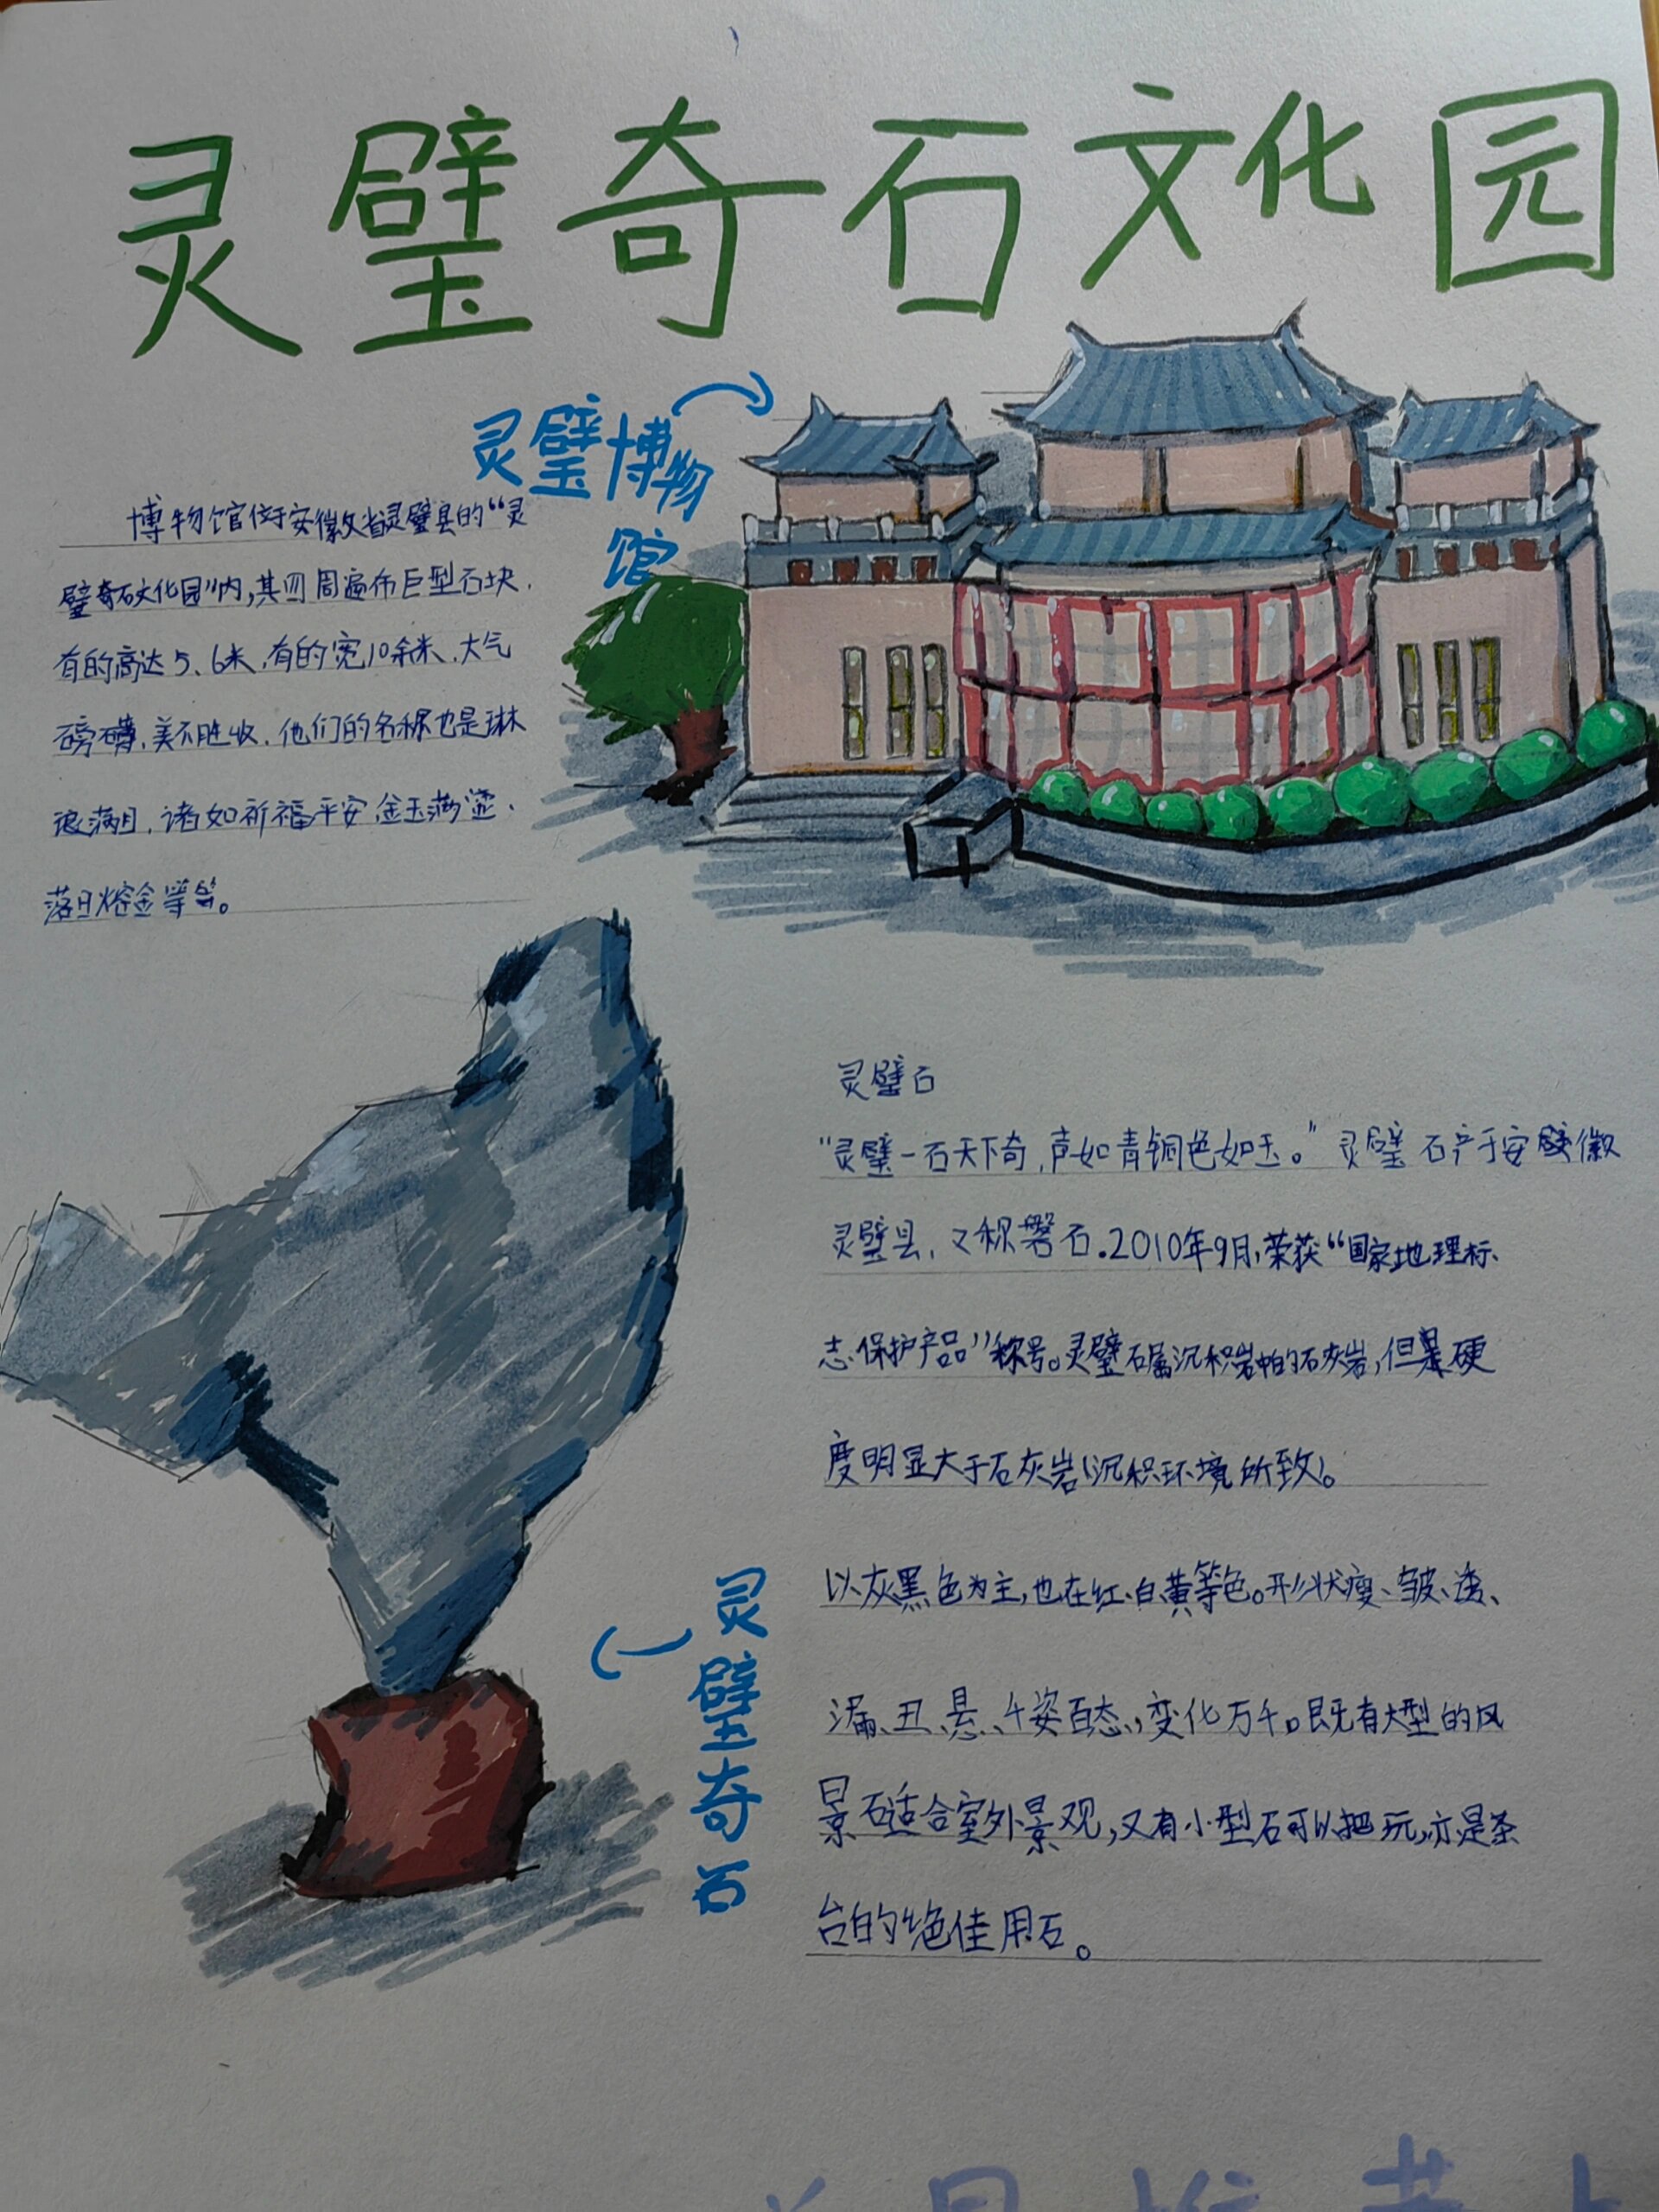 灵璧奇石文化园
灵璧博物
馆
博物馆位于安徽省灵璧县的“灵
璧奇石文化园”内,其四周遍布巨型石块,
有的高达5、6米,有的宽10余米,大气
磅礴,美不胜收,他们的名称也是琳
琅满目,诸如祈福平安、金玉满堂、
落日熔金等等。
灵璧石
“灵璧一石天下奇,声如青铜色如玉。”灵璧石产于安徽
灵璧县,又称磬石.2010年9月,荣获“国家地理标
志保护产品”称号。灵璧石属沉积岩的石灰岩,但是硬
度明显大于石灰岩(沉积环境所致)。
以灰黑色为主,也在红、白黄等色。形状瘦、皱、透、
漏、丑、悬、千姿百态,变化万千。既有大型的风
景石适合室外景观,又有小型石可以把玩,亦是茶
台的绝佳用石。
灵璧奇石